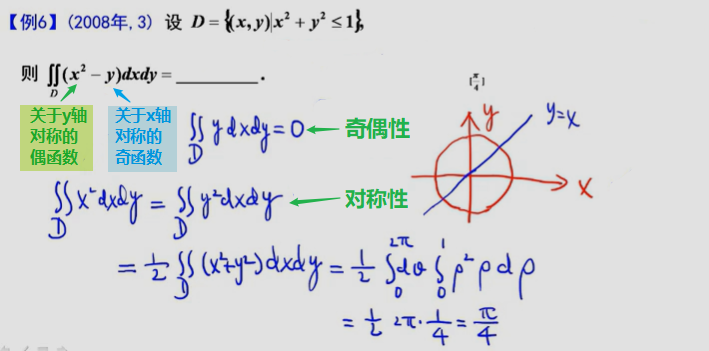 【例6】(2008年,3) 设 D = {(x,y)|x² + y² ≤ 1},
则 ∬_D (x² − y)dxdy = ________.
[π/4]
关于y轴
对称的
偶函数
关于x轴
对称的
奇函数
∬_D y dxdy = 0 ← 奇偶性
y
y=x
x
∬_D x² dxdy = ∬_D y² dxdy ← 对称性
= 1/2 ∬_D (x²+y²) dxdy = 1/2 ∫_0^{2π} dθ ∫_0^1 ρ² ρ dρ
= 1/2 2π · 1/4 = π/4